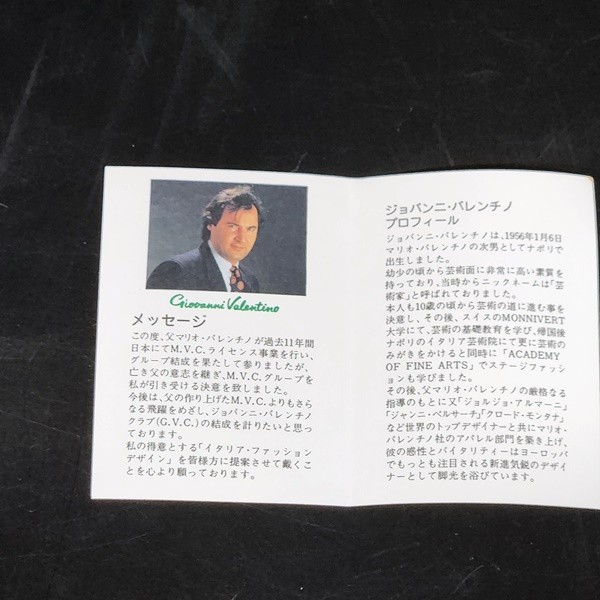 Giovanni Valentino
メッセージ
この度、父マリオ・バレンチノが過去11年間
日本にてM.V.C.ライセンス事業を行い、
グループ結成を果たして参りましたが、
亡き父の意志を継ぎ、M.V.C.グループを
私が引き受ける決意を致しました。
今後は、父の作り上げたM.V.C.よりもさら
なる飛躍をめざし、ジョバンニ・バレンチノ
クラブ(G.V.C.)の結成を計りたいと思っ
ております。
私の得意とする「イタリア・ファッション
デザイン」を皆様方に提案させて戴くこ
とを心より願っております。
ジョバンニ・バレンチノ
プロフィール
ジョバンニ・バレンチノは、1956年1月6日
マリオ・バレンチノの次男としてナポリで
出生しました。
幼少の頃から芸術面に非常に高い素質を
持っており、当時からニックネームは「芸
術家」と呼ばれておりました。
本人も10歳の頃から芸術の道に進む事を
決意し、その後、スイスのMONNIVERT
大学にて、芸術の基礎教育を学び、帰国後
ナポリのイタリア芸術院にて更に芸術の
みがきをかけると同時に「ACADEMY
OF FINE ARTS」でステージファッショ
ンも学びました。
その後、父マリオ・バレンチノの厳格なる
指導のもとに又「ジョルジョ・アルマーニ」
「ジャンニ・ベルサーチ」「クロード・モンタナ」
など世界のトップデザイナーと共にマリオ・
バレンチノ社のアパレル部門を築き上げ、
彼の感性とバイタリティーはヨーロッパ
でもっとも注目される新進気鋭のデザイ
ナーとして脚光を浴びています。